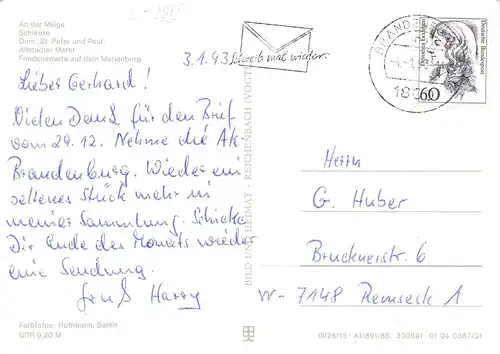 An der Melge
Schleuse
Dom „St. Peter und Paul"
Altstädter Markt
Friedenswarte auf dem Marienberg
3.1.93
Schreib mal wieder.
BRANDENBURG
Deutsche Bundespost
60
Lieber Gerhard!
Vielen Dank für den Brief
vom 29.12. Nehme die AK
Brandenburg. Wieder ein
seltenes Stück mehr in
meiner Sammlung. Schicke
Dir Ende des Monats wieder
eine Sendung.
Gruß Harry
BILD UND HEIMAT · REICHENBACH (VOGTL)
Herrn
G. Huber
Brucknerstr. 6
W-7148 Remseck 1
Farbfotos: Hoffmann, Berlin
DDR 0,20 M
III/26/13 · A1/891/85 300691 01 04 0387/31